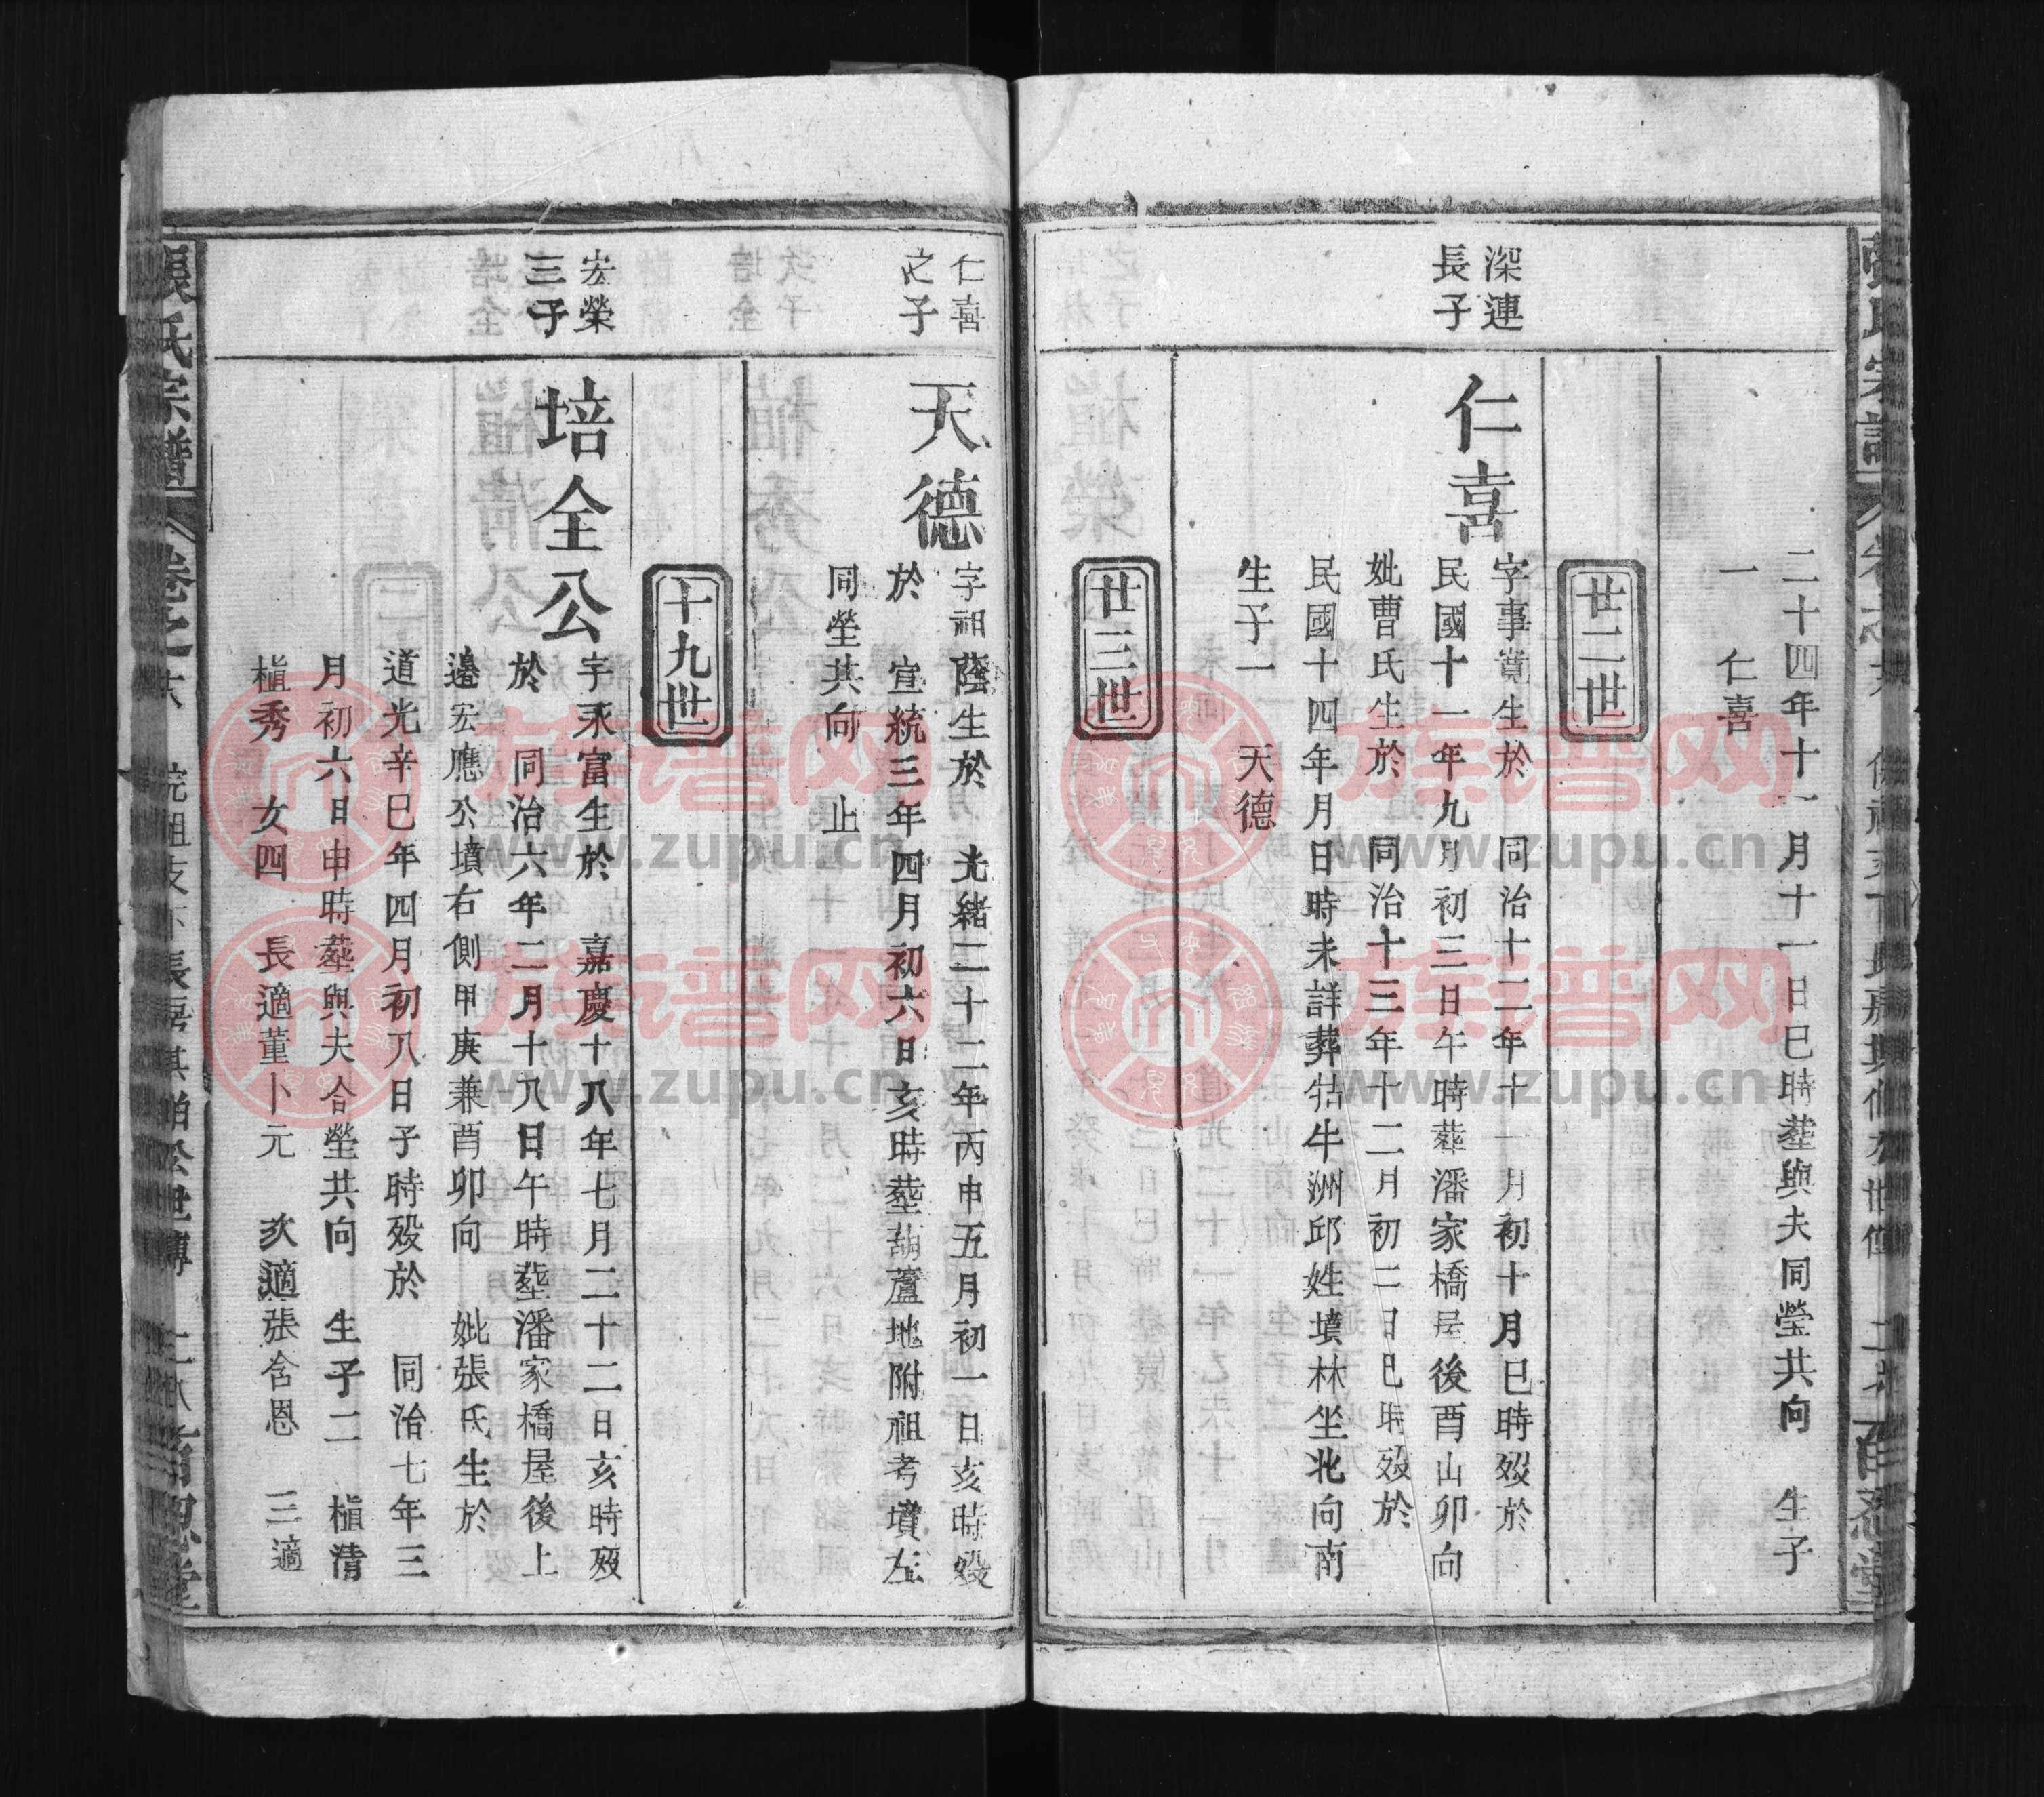 二十四年十一月十一日巳時塟與夫同塋共向　生子
一　仁喜
廿二世
深連
長子
仁喜
字事寬生於　同治十二年十一月初十月巳時殁於
民國十一年九月初三日午時塟潘家橋屋後酉山卯向
妣曹氏生於　同治十三年十二月初二日巳時殁於
民國十四年月日時未詳葬牯牛洲邱姓墳林坐北向南
生子一　天德
廿三世
仁喜
之子
天德
字祖蔭生於　光緒二十二年丙申五月初一日亥時殁
於　宣統三年四月初六日亥時塟葫蘆地附祖考墳左
同塋共向　止
十九世
宏榮
三子
培全公
字永富生於　嘉慶十八年七月二十二日亥時殁
於　同治六年二月十八日午時塟潘家橋屋後上
邉宏應公墳右側甲庚兼酉卯向　妣張氏生於
道光辛巳年四月初八日子時殁於　同治七年三
月初六日申時塟與夫合塋共向　生子二　植清
植秀　女四　長適董卜元　次適張含恩　三適
張氏宗譜　卷之六
百忍堂
族谱网
www.zupu.cn
族谱网
www.zupu.cn
族谱网
www.zupu.cn
族谱网
www.zupu.cn